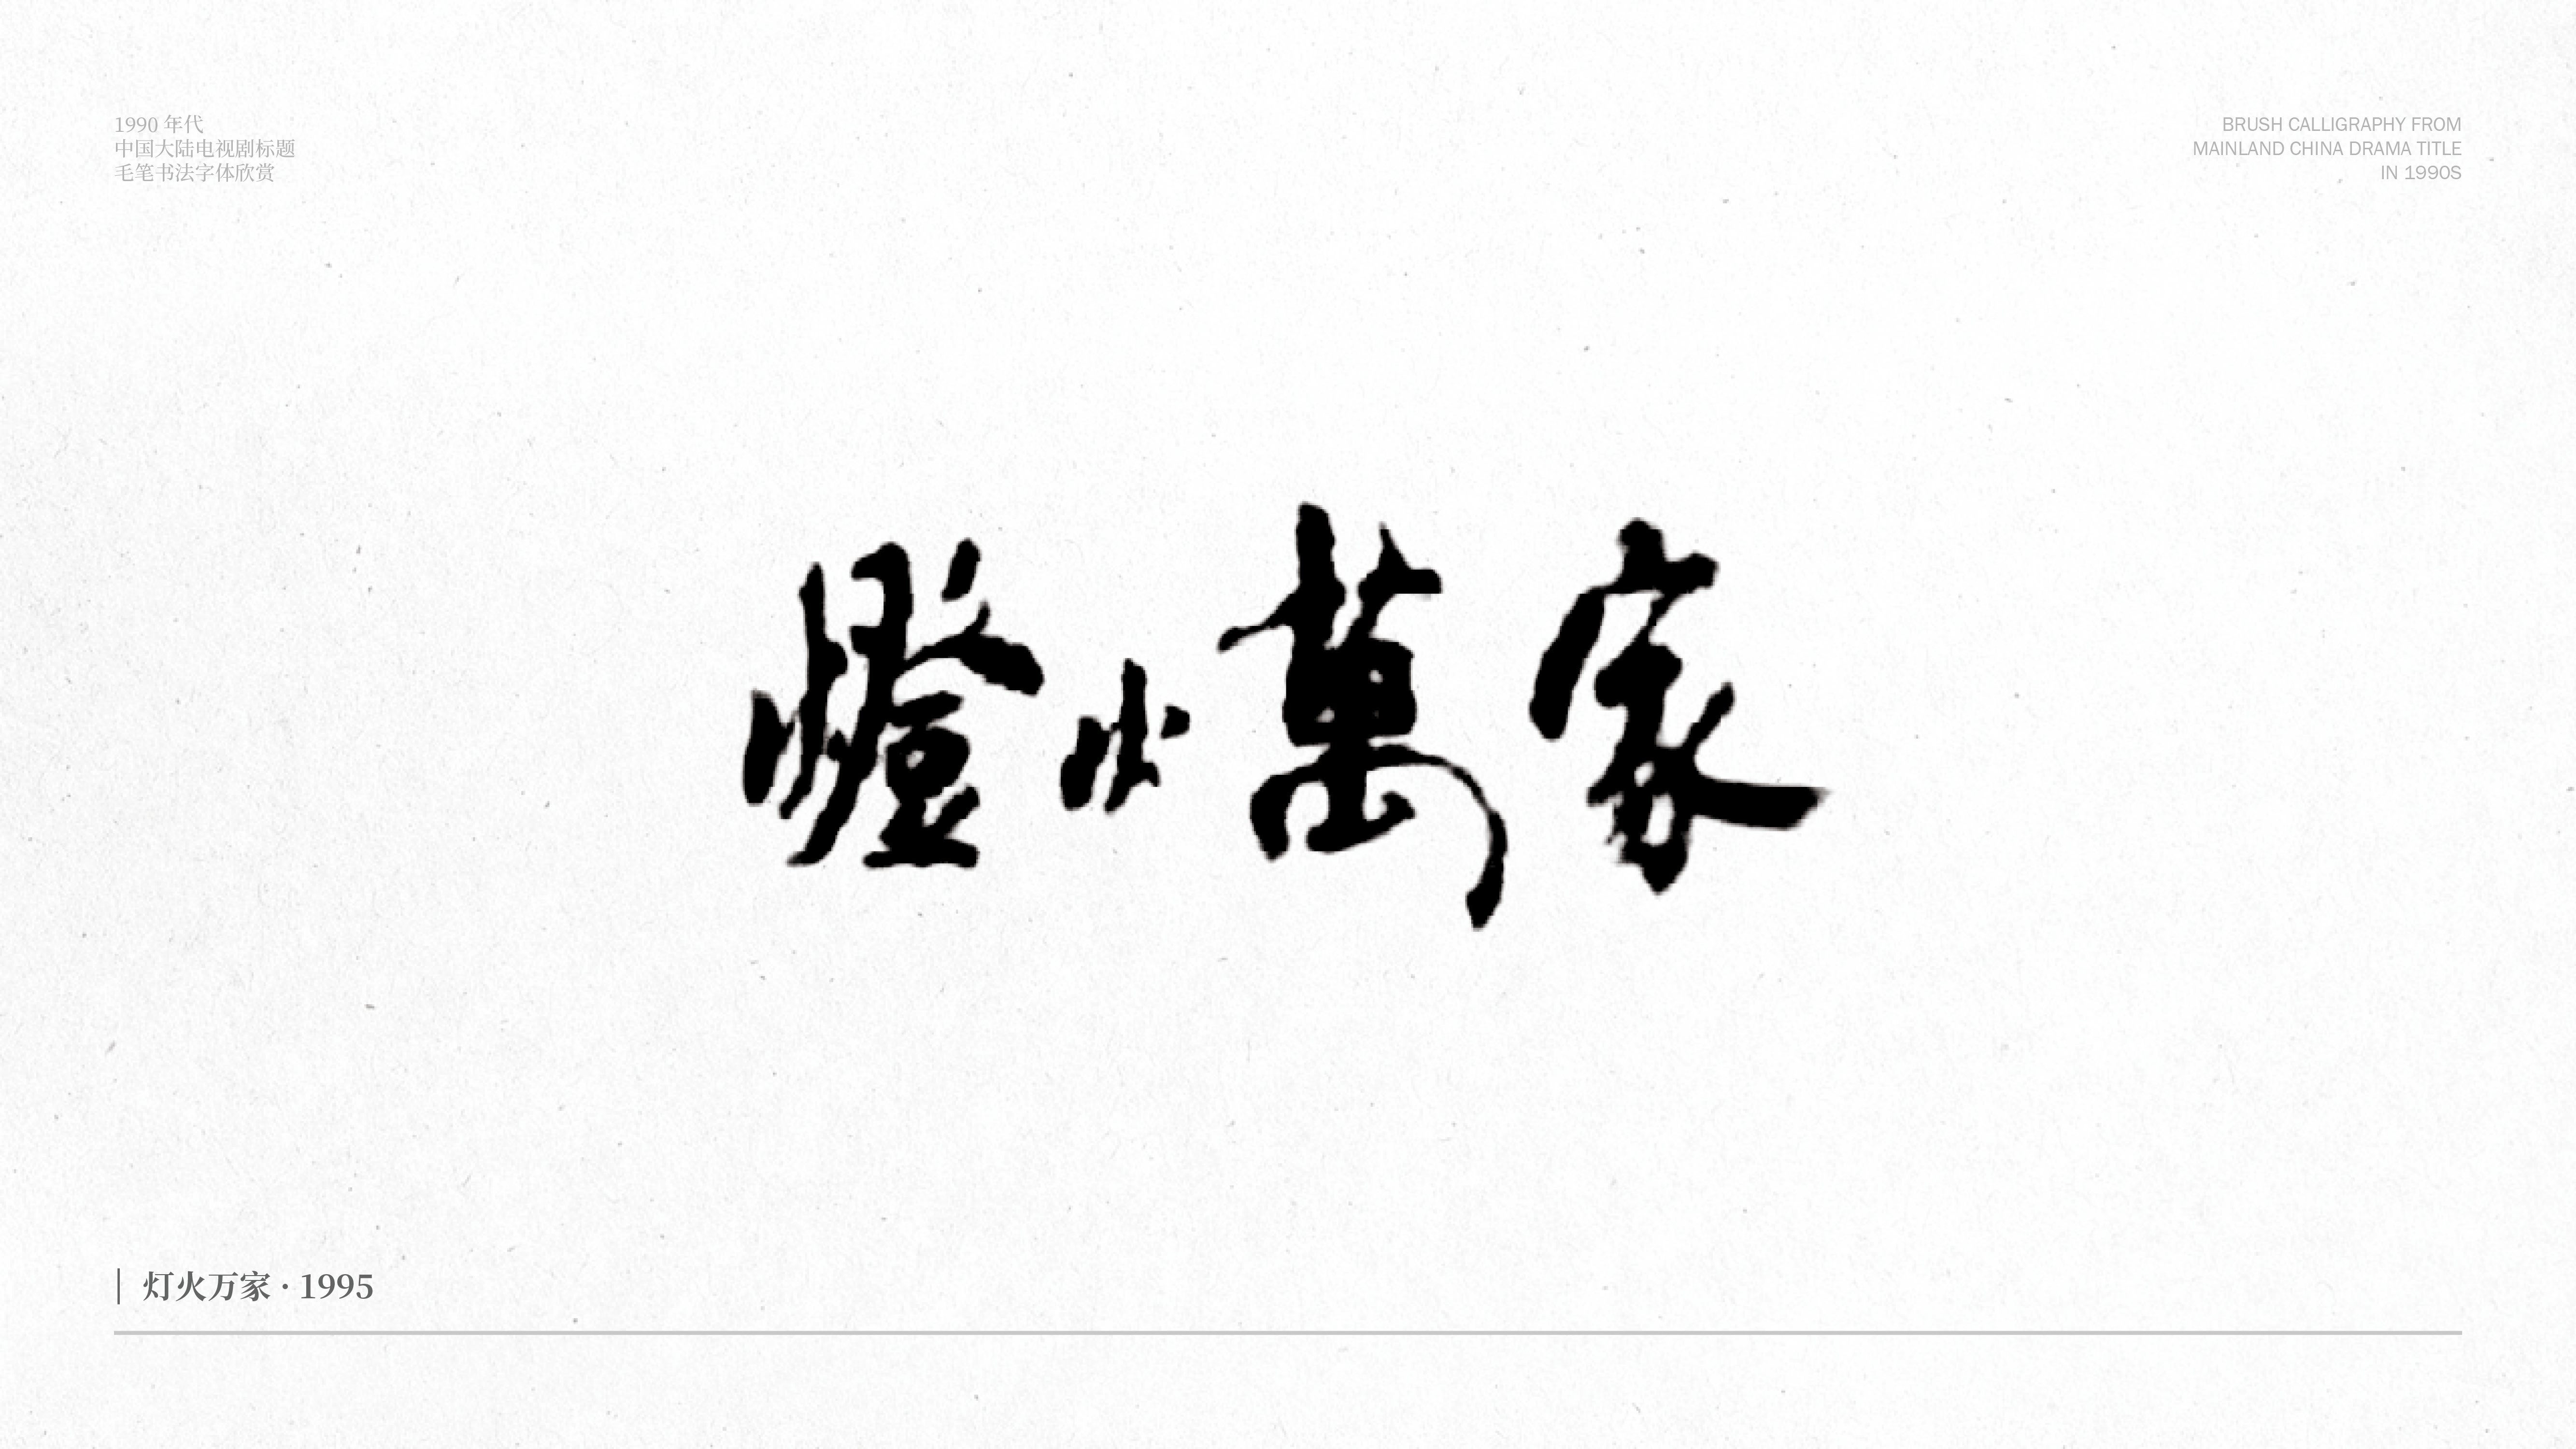 1990 年代
中国大陆电视剧标题
毛笔书法字体欣赏
BRUSH CALLIGRAPHY FROM
MAINLAND CHINA DRAMA TITLE
IN 1990S
燈火萬家
灯火万家 · 1995